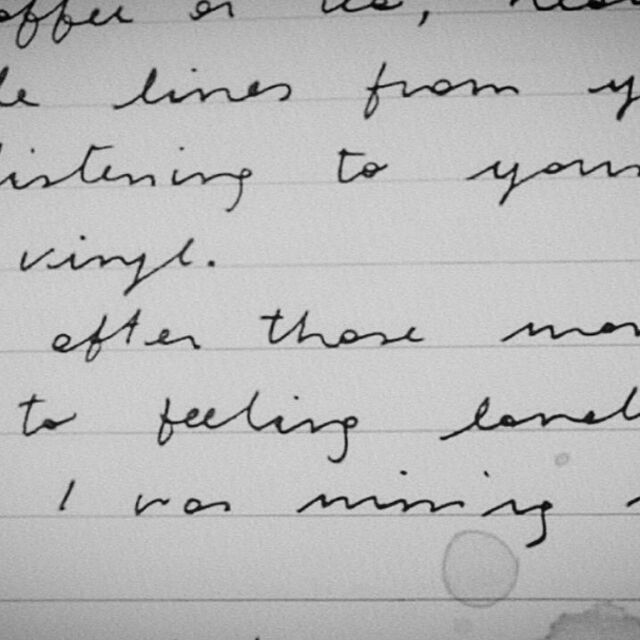 offee or tea,
le lines from y
listening to your
vinyl.
after those mor
to feeling lonel
I was missing